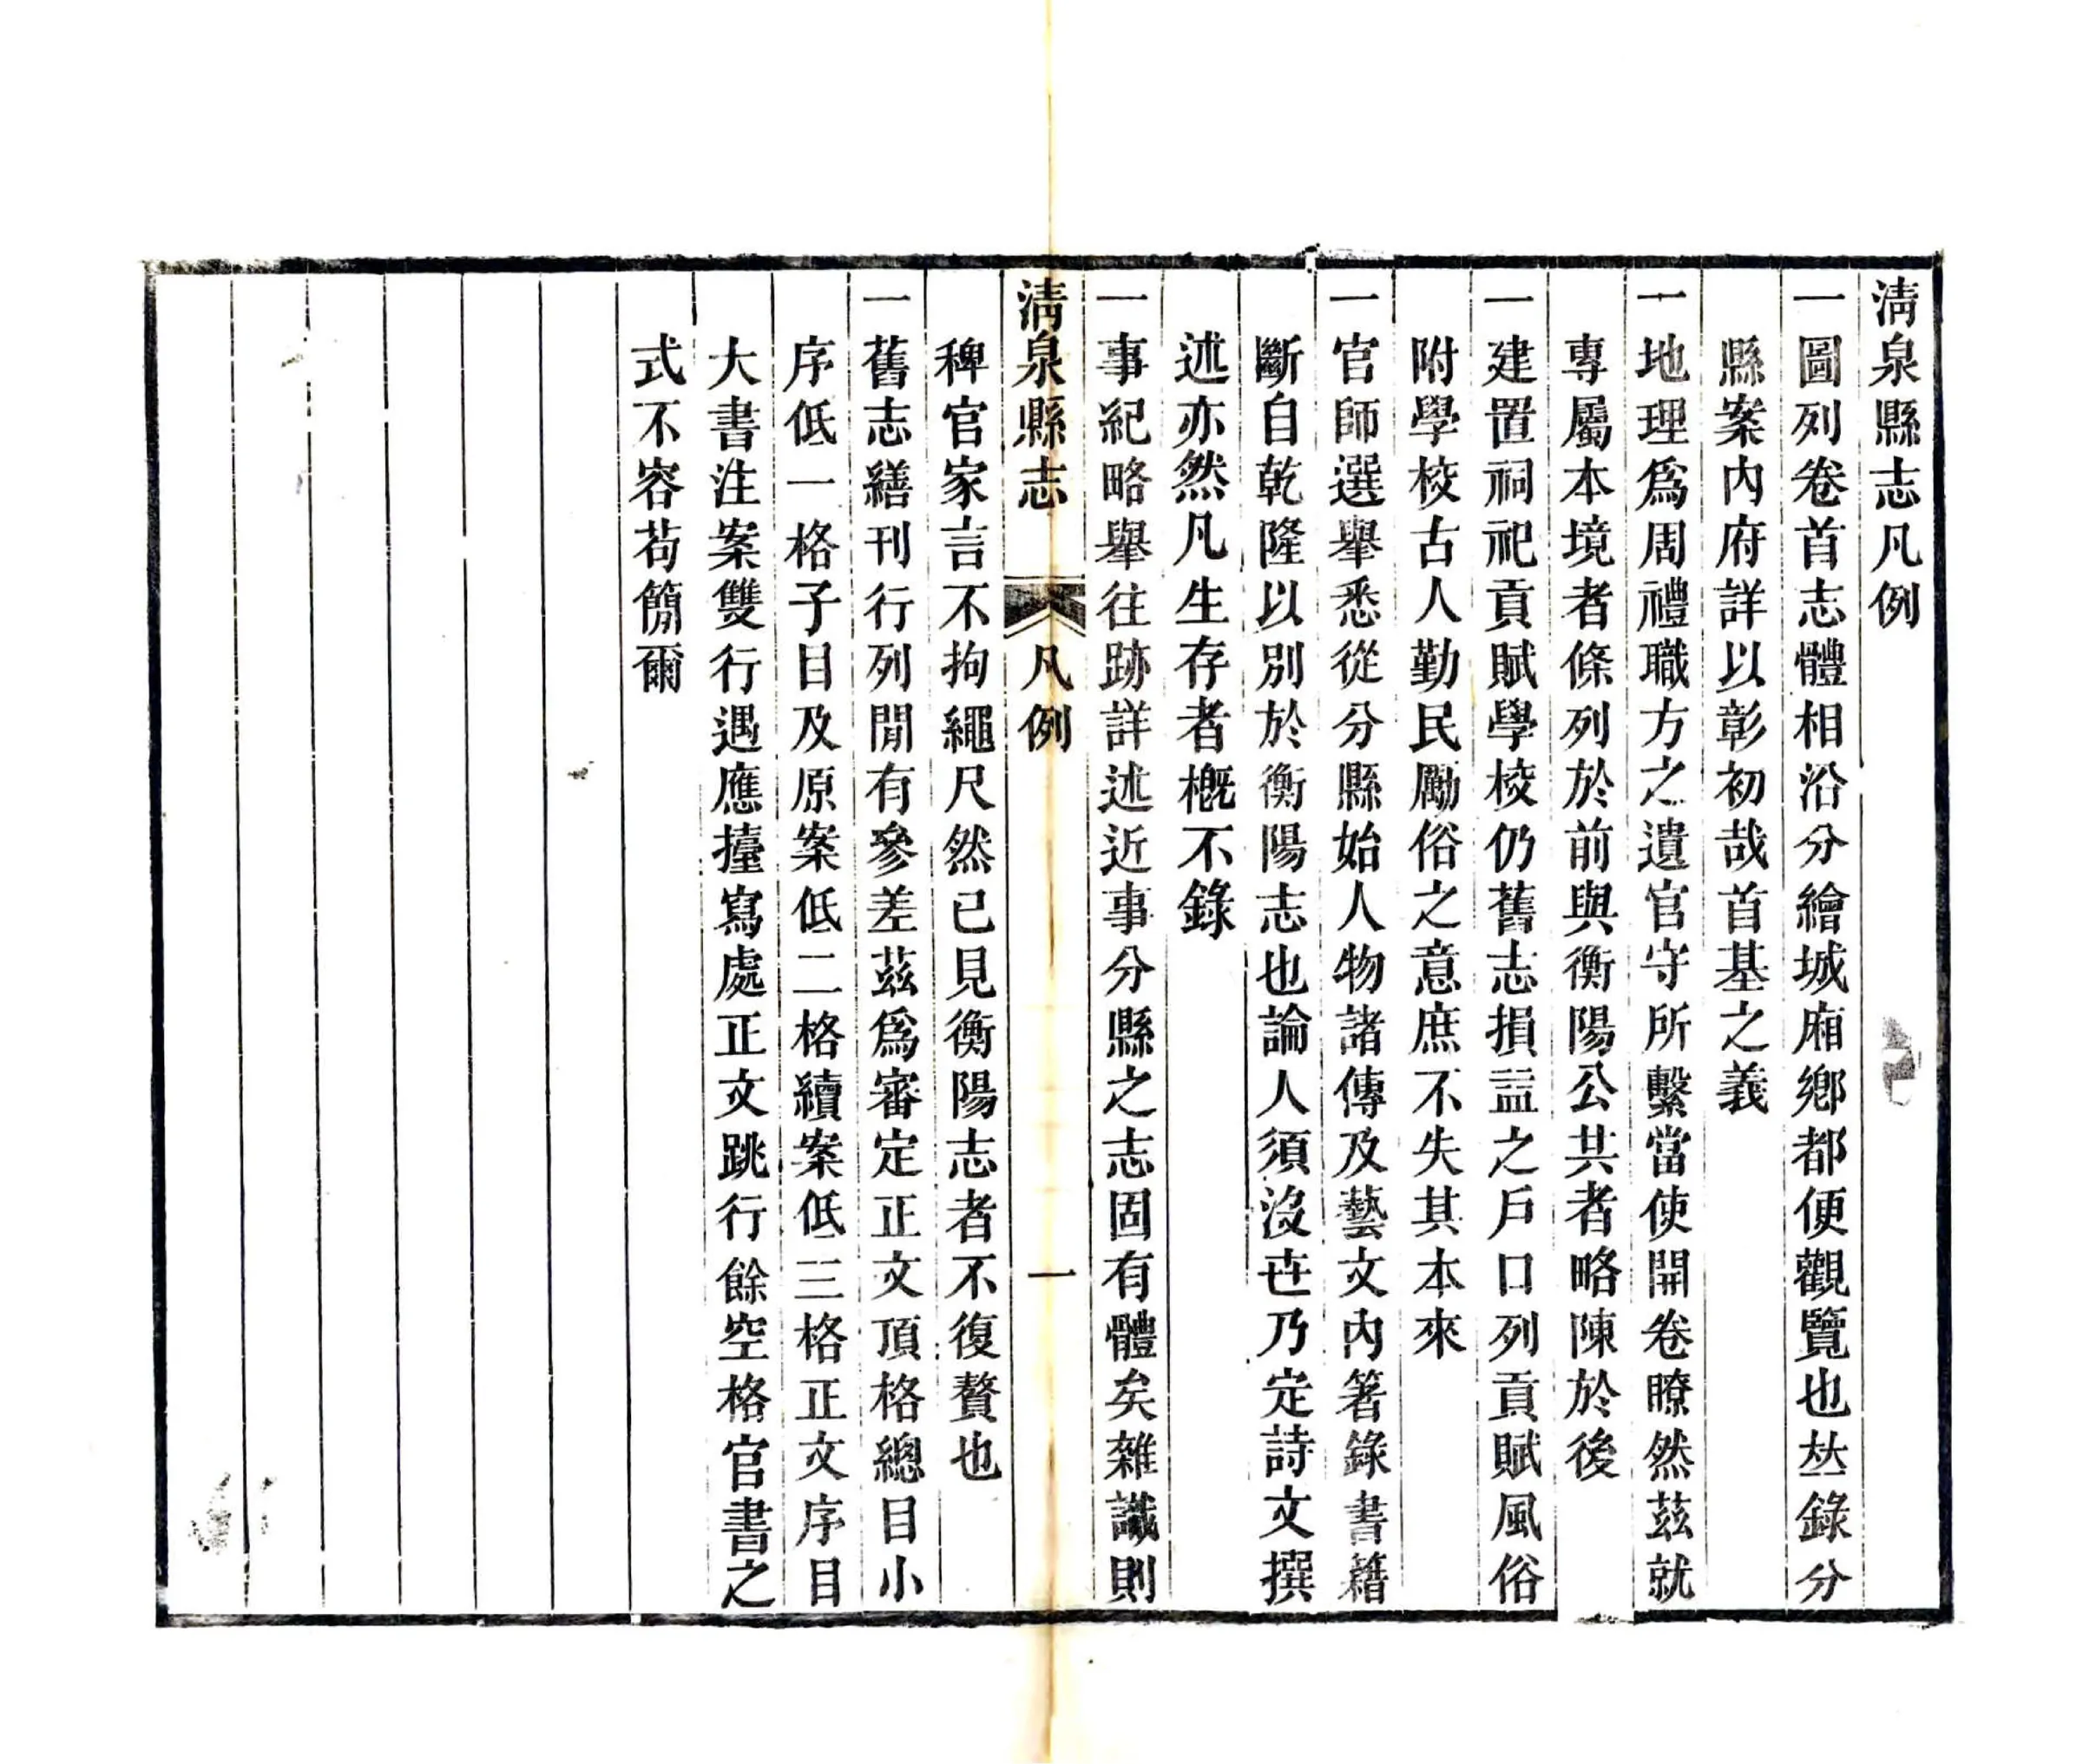 淸泉縣志凡例
一圖列卷首志體相沿分繪城廂鄕都便觀覽也𠀤錄分
縣案內府詳以彰初哉首基之義
一地理爲周禮職方之遺官守所繫當使開卷瞭然茲就
專屬本境者條列於前與衡陽公共者略陳於後
一建置祠祀貢賦學校仍舊志損益之戶口列貢賦風俗
附學校古人勤民勵俗之意庶不失其本來
一官師選舉悉從分縣始人物諸傳及藝文內箸錄書籍
斷自乾隆以別於衡陽志也論人須沒世乃定詩文撰
述亦然凡生存者槪不錄
一事紀略舉往跡詳述近事分縣之志固有體矣雜識則
淸泉縣志 凡例 一
稗官家言不拘繩尺然已見衡陽志者不復贅也
一舊志繕刊行列閒有參差茲爲審定正文頂格總目小
序低一格子目及原案低二格續案低三格正文序目
大書注案雙行遇應擡寫處正文跳行餘空格官書之
式不容苟簡爾